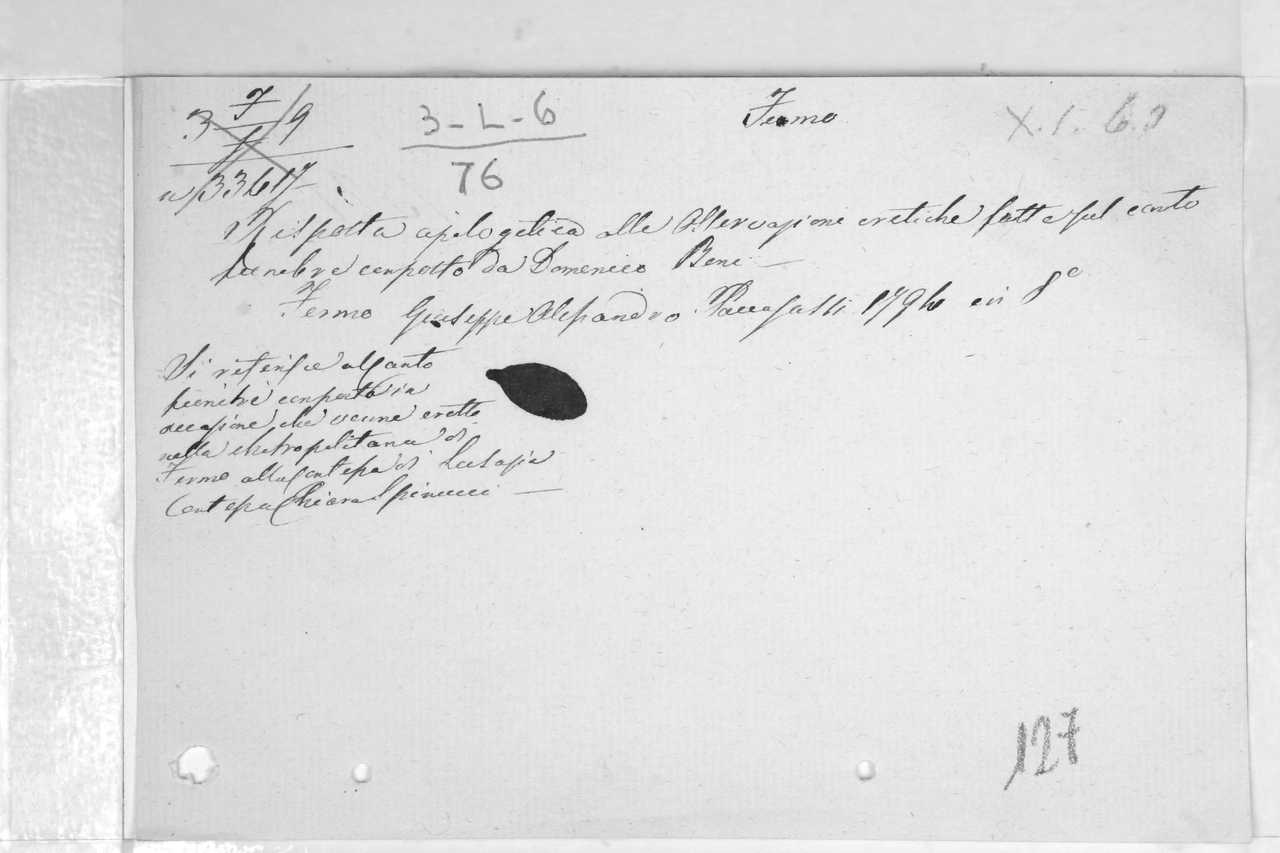 Fermo
3 F/F 9
3-L-6
76
n 33617
Risposta apologetica alle Osservazioni critiche fatte sul canto
funebre composto da Domenico Beni —
Fermo Giuseppe Alessandro Paccasassi 1794 in 8°
Si riferisce al Canto
funebre composto in
occasione che venne eretto
nella Metropolitana di
Fermo alla Contessa di Lusazia
Contessa Chiara Spinucci —
127